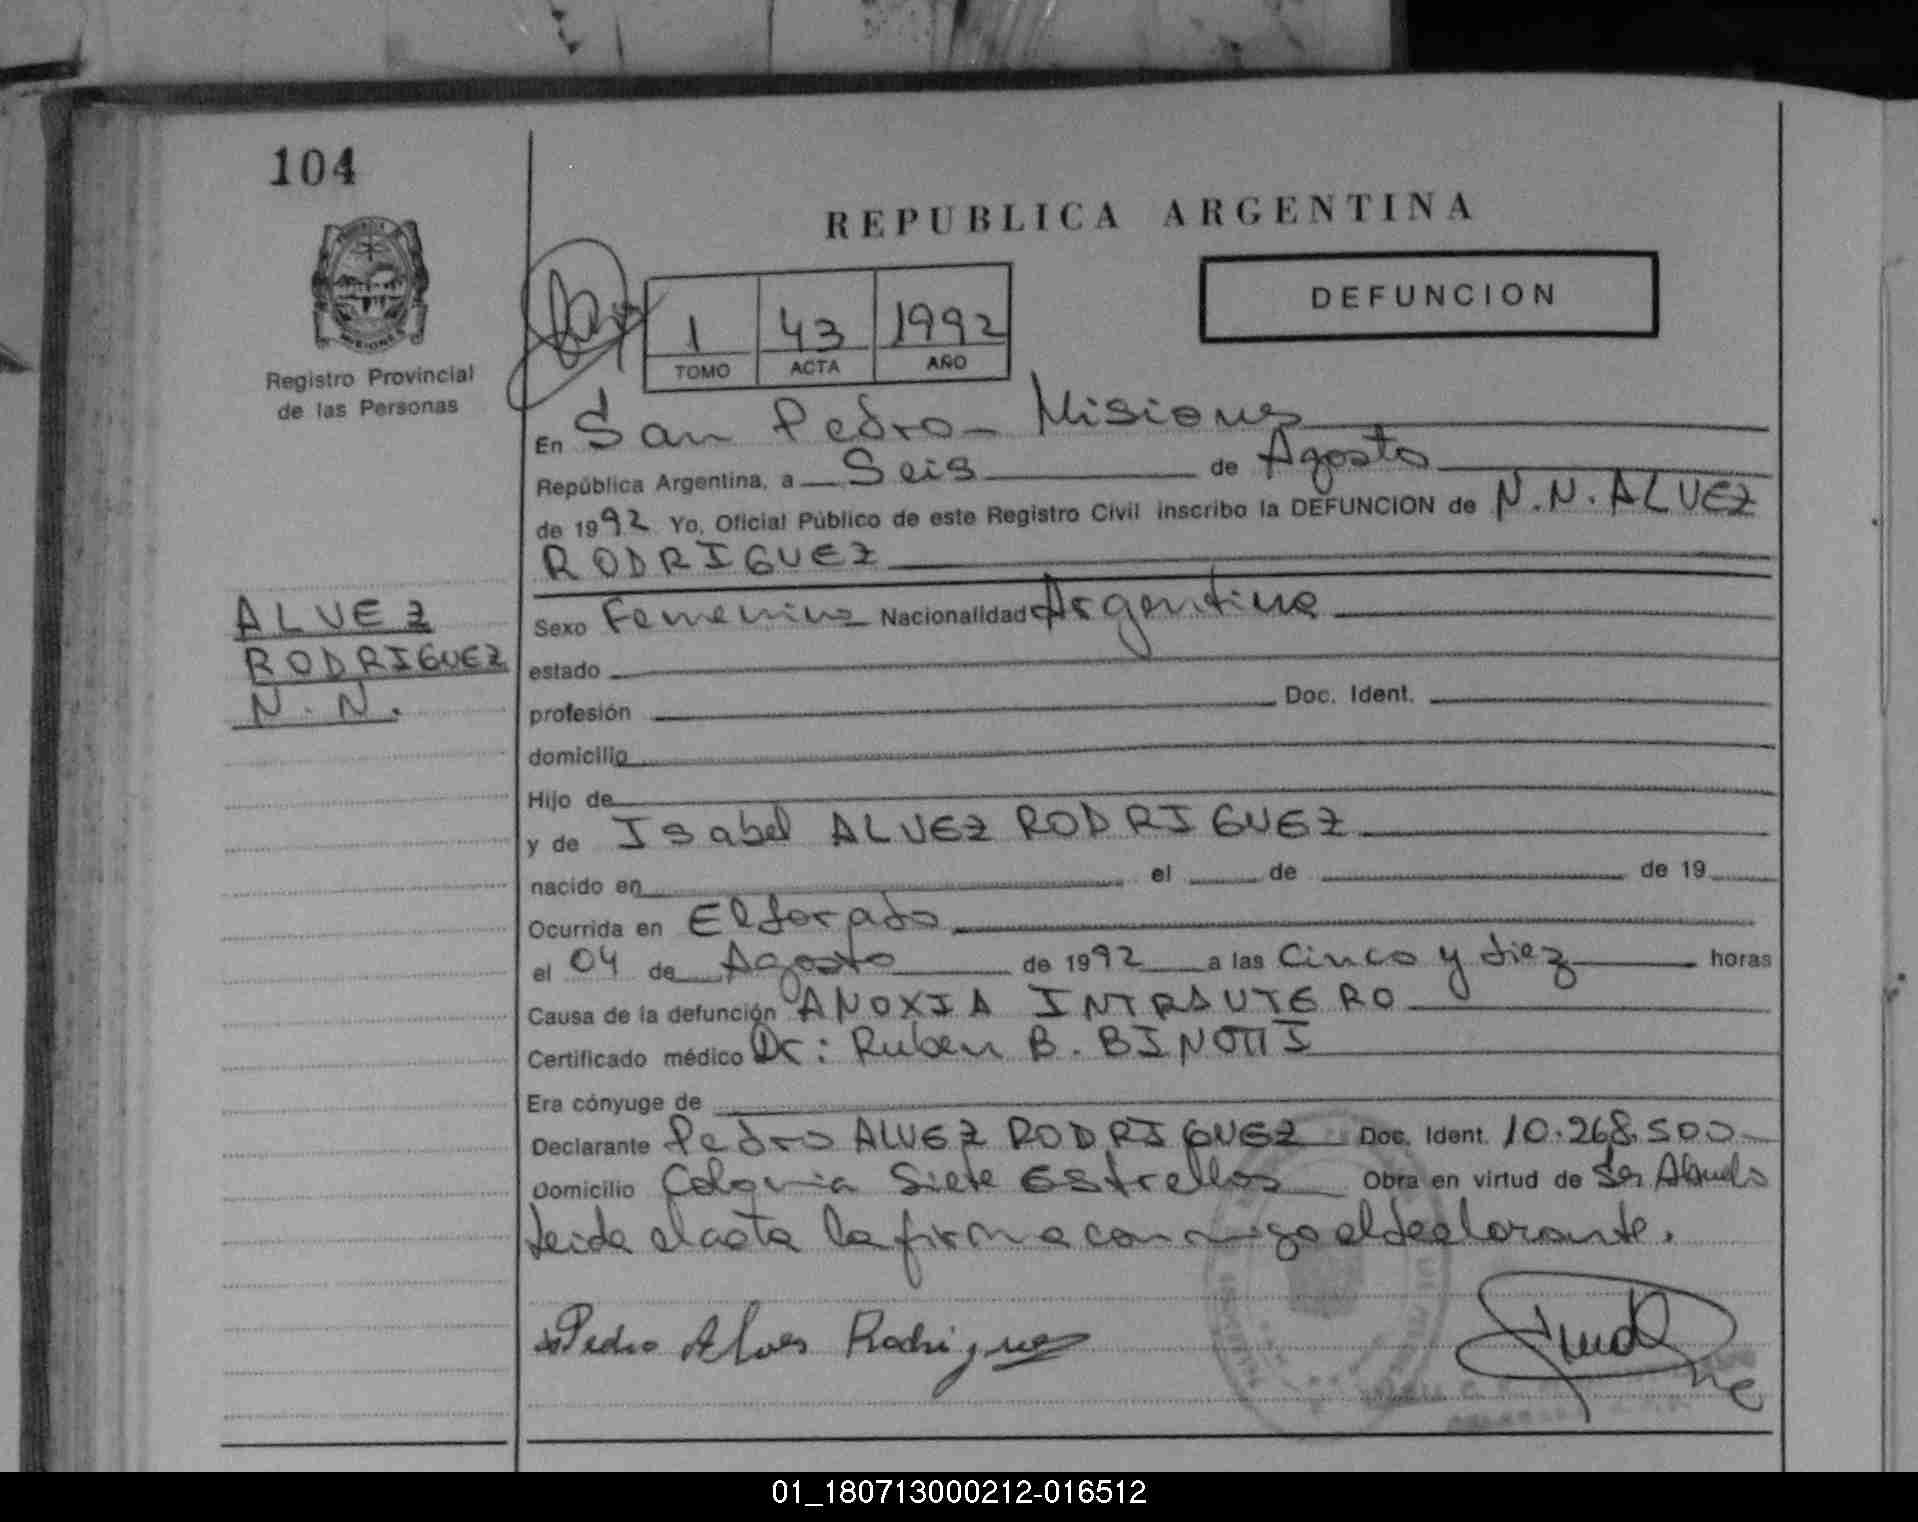 104
REPUBLICA ARGENTINA
MISIONES
Registro Provincial
de las Personas
1 43 1992
TOMO ACTA AÑO
DEFUNCION
En San Pedro - Misiones
República Argentina, a Seis de Agosto
de 1992 Yo, Oficial Público de este Registro Civil inscribo la DEFUNCION de N.N. ALVEZ
RODRIGUEZ
ALVEZ
RODRIGUEZ
N.N.
Sexo Femenino Nacionalidad Argentina
estado
profesión Doc. Ident.
domicilio
Hijo de
y de Isabel ALVEZ RODRIGUEZ
nacido en el de de 19
Ocurrida en Eldorado
el 04 de Agosto de 1992 a las Cinco y diez horas
Causa de la defunción ANOXIA INTRAUTERO
Certificado médico Dr: Ruben B. BINOTTI
Era cónyuge de
Declarante Pedro ALVEZ RODRIGUEZ Doc. Ident. 10.268.500
Domicilio Colonia Siete Estrellas Obra en virtud de Ser Abuelo
Leida el acta la firma conmigo el declarante.
Pedro Alves Rodriguez
01_180713000212-016512